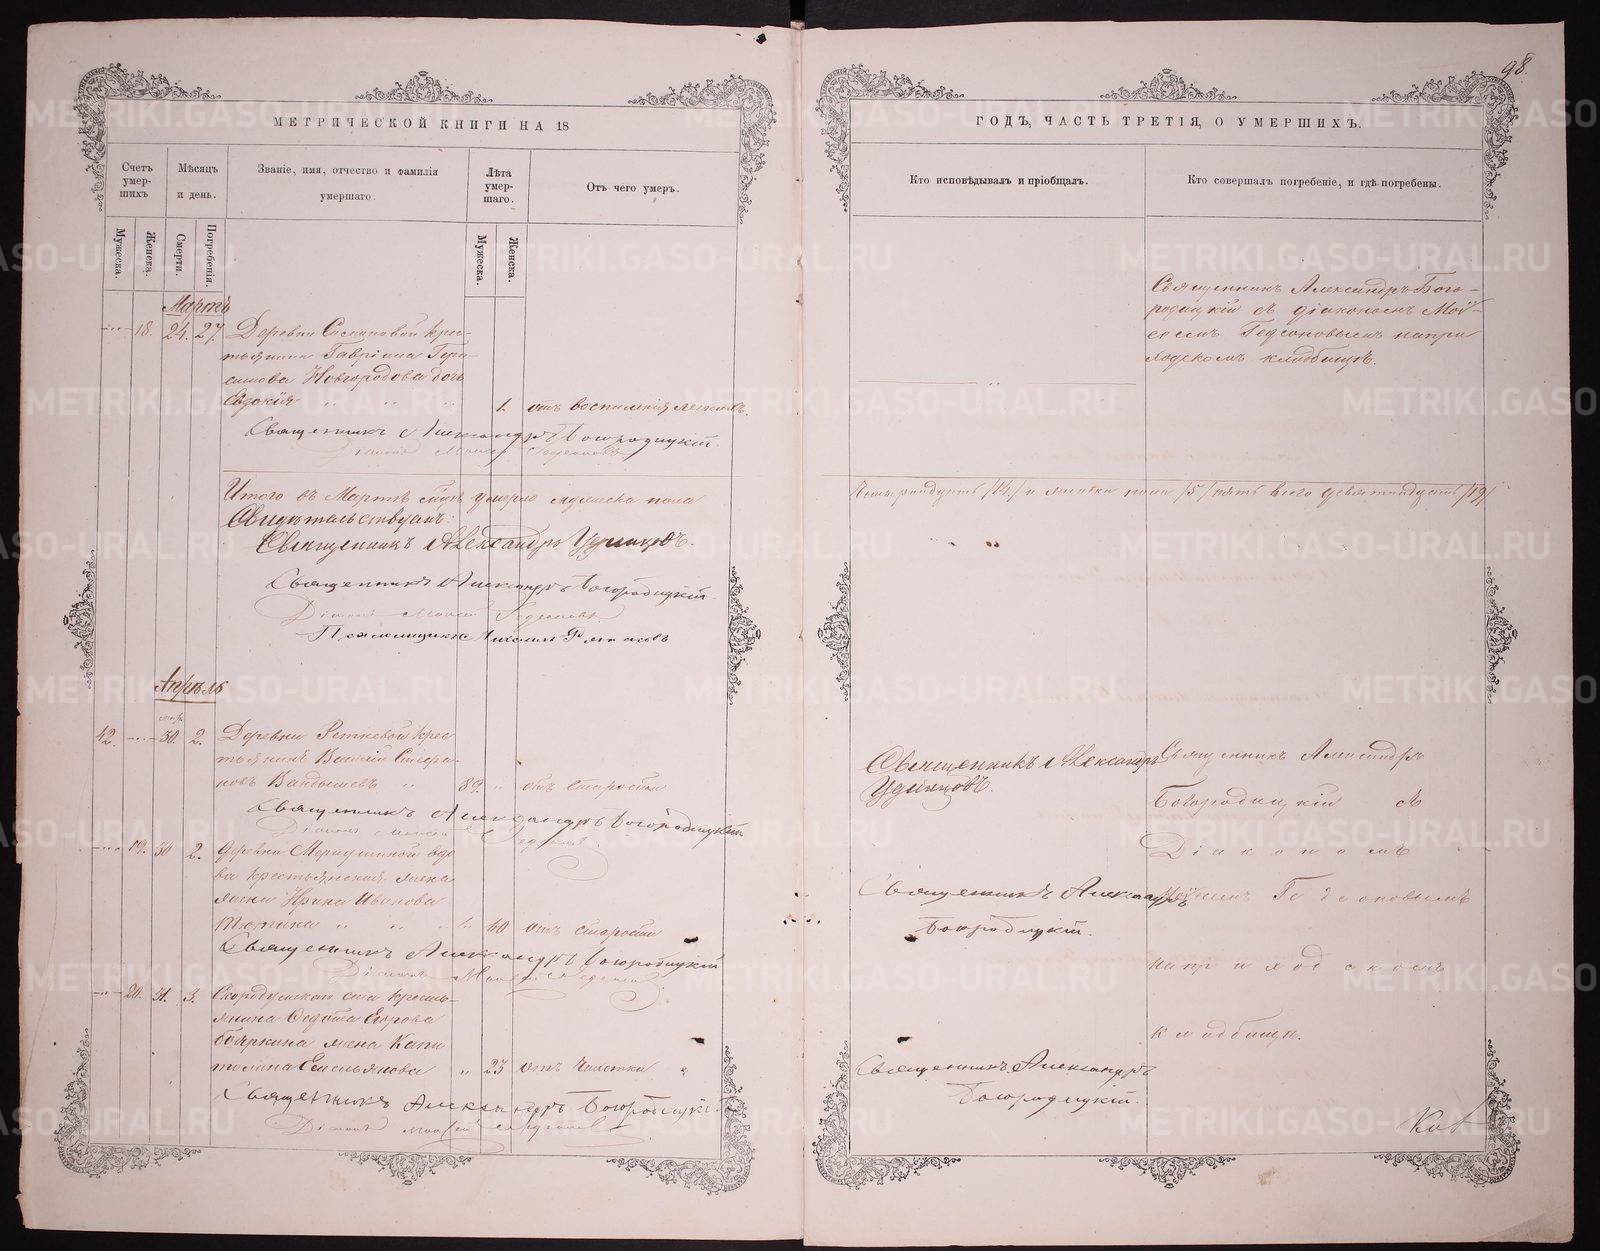 98.
МЕТРИЧЕСКОЙ КНИГИ НА 18
Счетъ умер-шихъ
Мѣсяцъ и день.
Званіе, имя, отчество и фамилія умершаго.
Лѣта умер-шаго.
Отъ чего умеръ.
Мужеска.
Женска.
Смерти.
Погребенія.
Мужеска.
Женска.
Мартъ
18. 24. 27. Деревни крес-
тьянина Гавріила Гера-
симова Новгородова дочь
Евдокія 1. отъ воспаленія легкихъ.
Священникъ Александръ Богородицкій.
Діаконъ Моисей Гедеоновъ
Итого въ Мартѣ умерло мужеска пола
Свидѣтельствуемъ:
Священникъ Александръ Удинцовъ.
Священникъ Александръ Богородицкій.
Діаконъ Моисей Гедеоновъ
Псаломщикъ Михаилъ
Апрѣль
42. 30. 2. Деревни Реткевой крес
тьянинъ Василій Стефа-
новъ Вандышевъ 89. отъ старости
Священникъ Александръ Богородицкій
Діаконъ Моисей Гедеоновъ
19. 30 2. Деревни вдо
ва крестьянская жена
Ирина Иванова
60 отъ старости
Священникъ Александръ Богородицкій
Діаконъ Моисей Гедеоновъ
20. 31. 3. Скородумскаго села кресть-
янина Федота Егорова
Бояркина жена Капи
толина Емельянова 23 отъ Чахотки
Священникъ Александръ Богородицкій
Діаконъ Моисей Гедеоновъ
ГОДЪ, ЧАСТЬ ТРЕТІЯ, О УМЕРШИХЪ.
Кто исповѣдывалъ и пріобщалъ.
Кто совершалъ погребеніе, и гдѣ погребены.
Священникъ Александръ Бого-
родицкій съ діакономъ Мои-
сеемъ Гедеоновымъ на при
ходскомъ кладбищѣ.
Четырнадцать /14/ и женска пола /5/ пять всего девятнадцать /19/
Священникъ Александръ
Удинцовъ.
Священникъ Александръ
Богородицкій съ
Діакономъ
Священникъ Александръ
Богородицкій.
Моисеемъ Гедеоновымъ
на приходскомъ
кладбищѣ.
Священникъ Александръ
Богородицкій.
METRIKI.GASO-URAL.RU